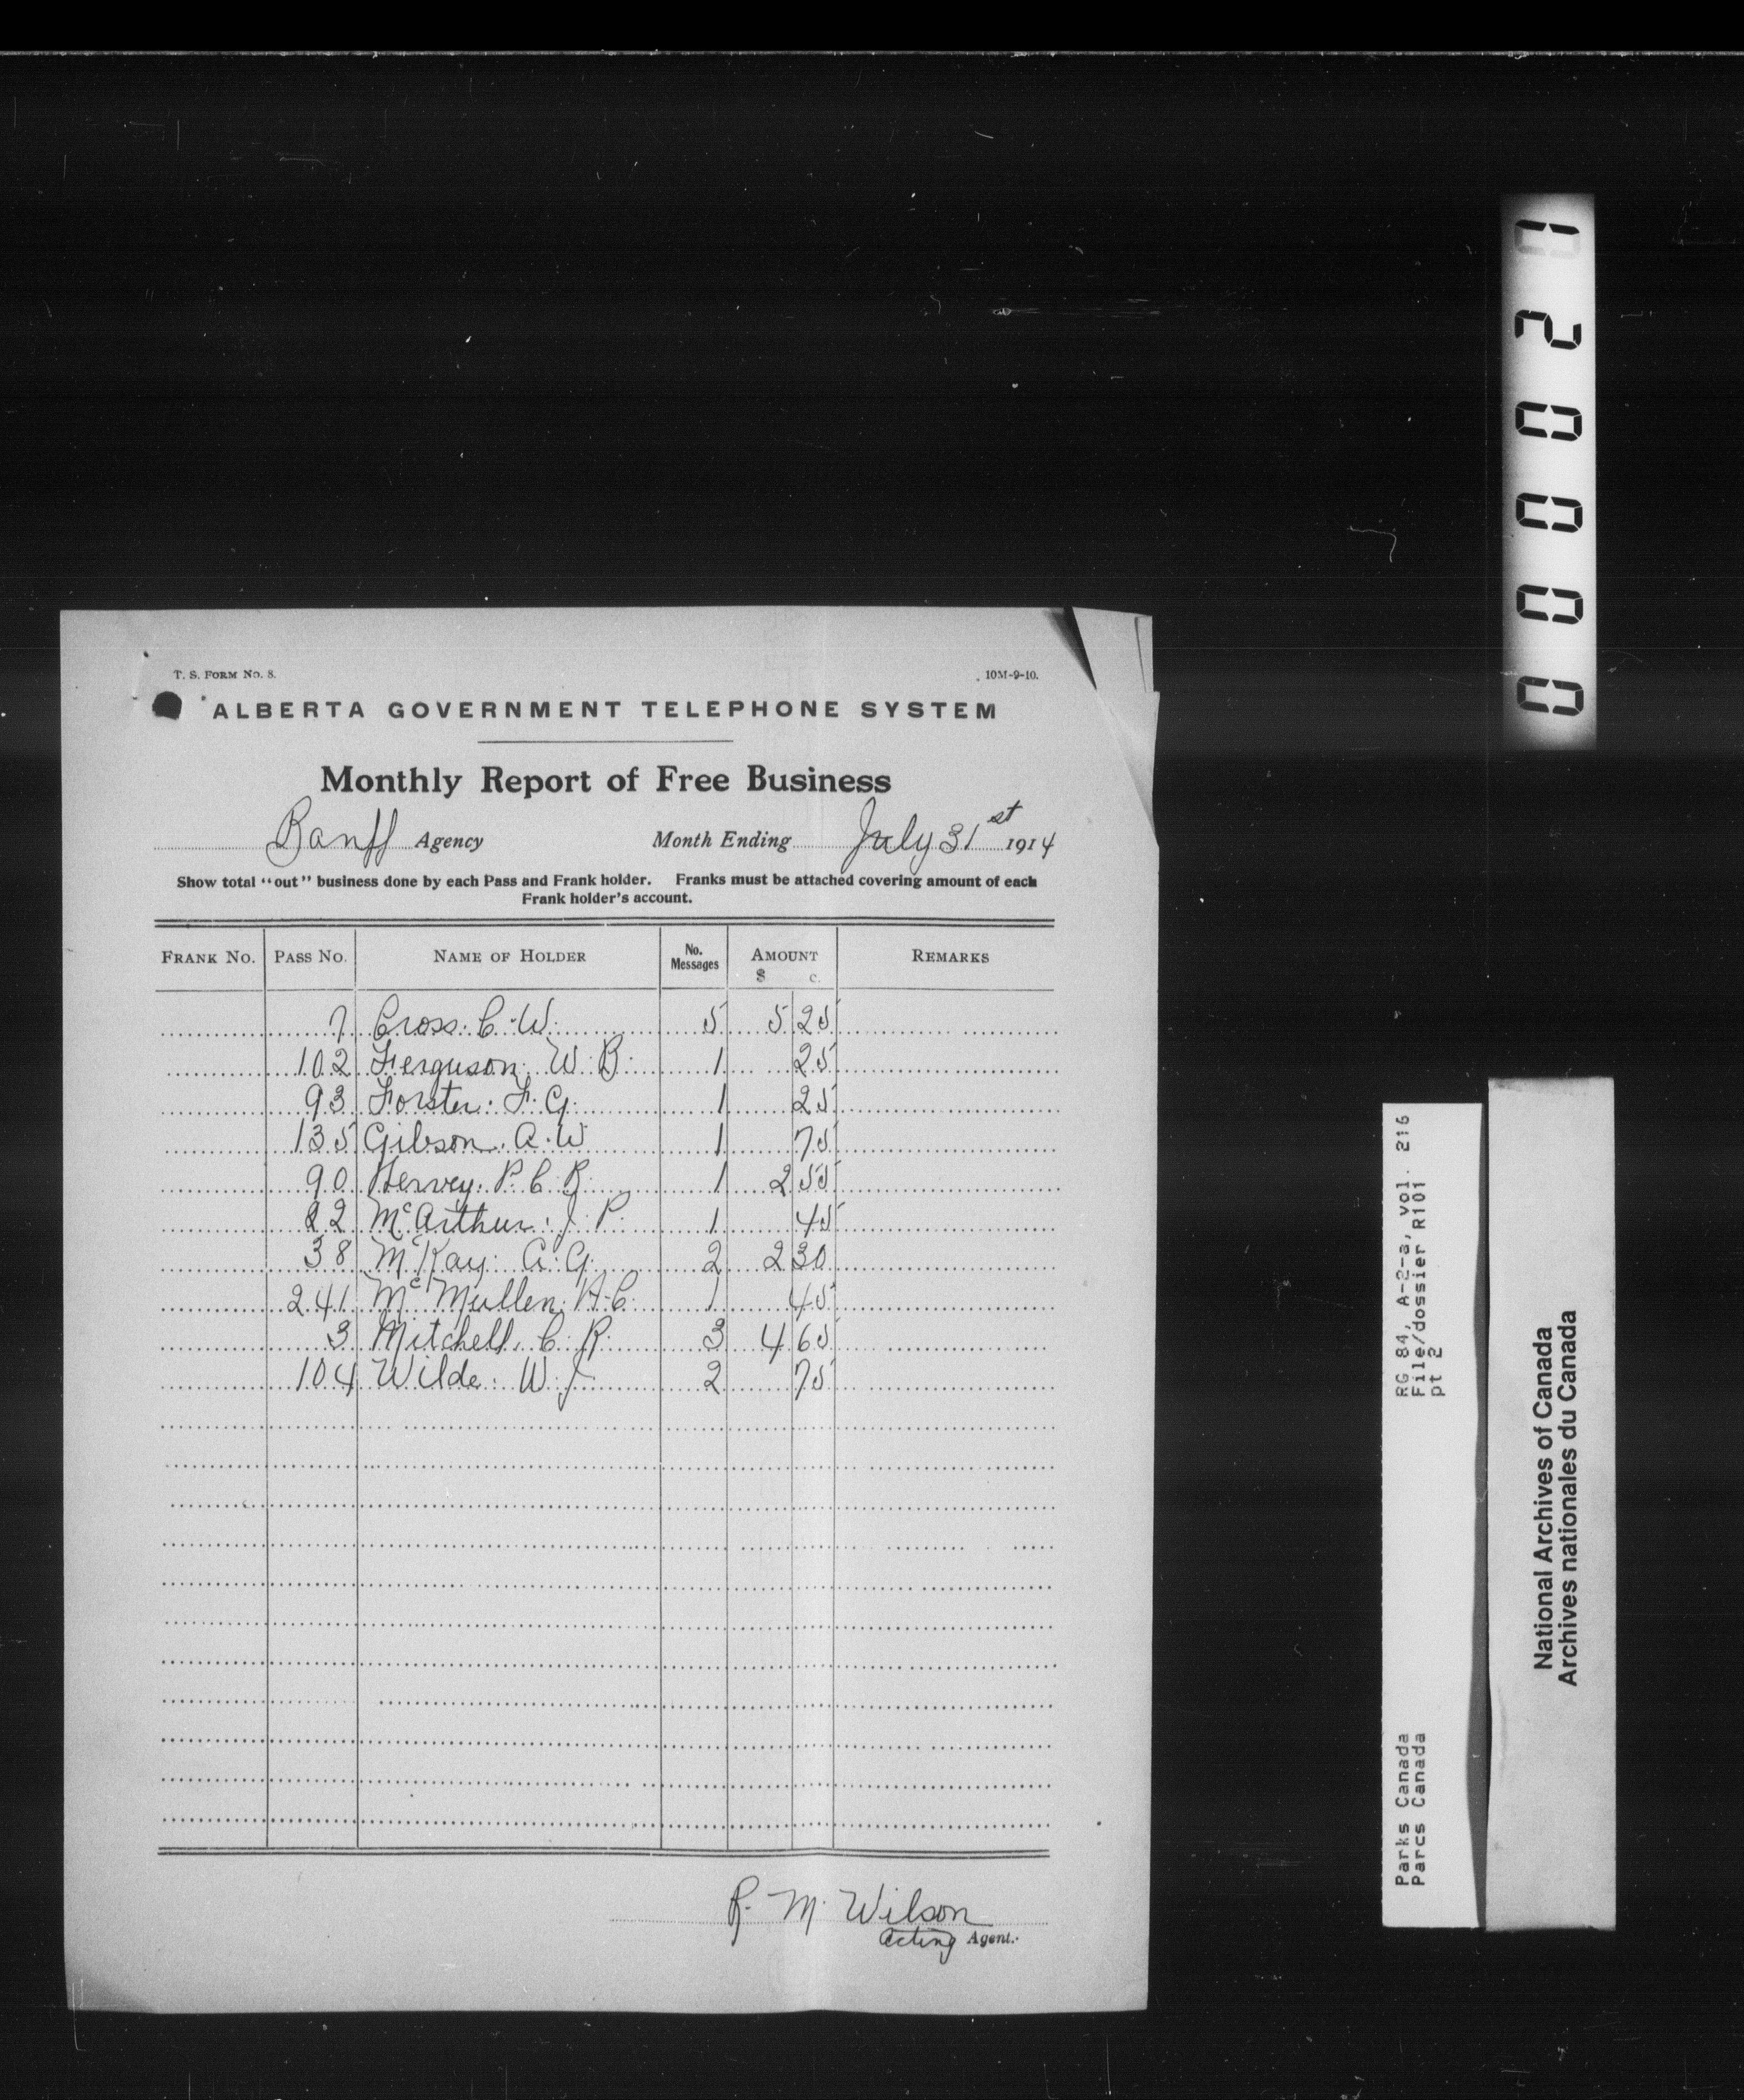 T. S. FORM No. 8.
10M-9-10.
ALBERTA GOVERNMENT TELEPHONE SYSTEM
Monthly Report of Free Business
Banff Agency Month Ending July 31st 1914
Show total "out" business done by each Pass and Frank holder. Franks must be attached covering amount of each
Frank holder's account.
FRANK No. PASS No. NAME OF HOLDER No. Messages AMOUNT $ c. REMARKS
7 Cross. C. W. 5 5 25
102 Ferguson. W. B. 1 25
93 Forster. F. G. 1 25
135 Gibson. A. W 1 75
90 Hervey. P. C. R. 1 2 55
22 McArthur. J. P. 1 45
38 McKay. A. G. 2 2 30
241 McMullen. H. C. 1 45
3 Mitchell. C. R. 3 4 65
104 Wilde. W. J. 2 75
R. M. Wilson
Acting Agent.
000021
RG 84, A-2-a, vol. 216
File/dossier R101
pt 2
Parks Canada
Parcs Canada
National Archives of Canada
Archives nationales du Canada